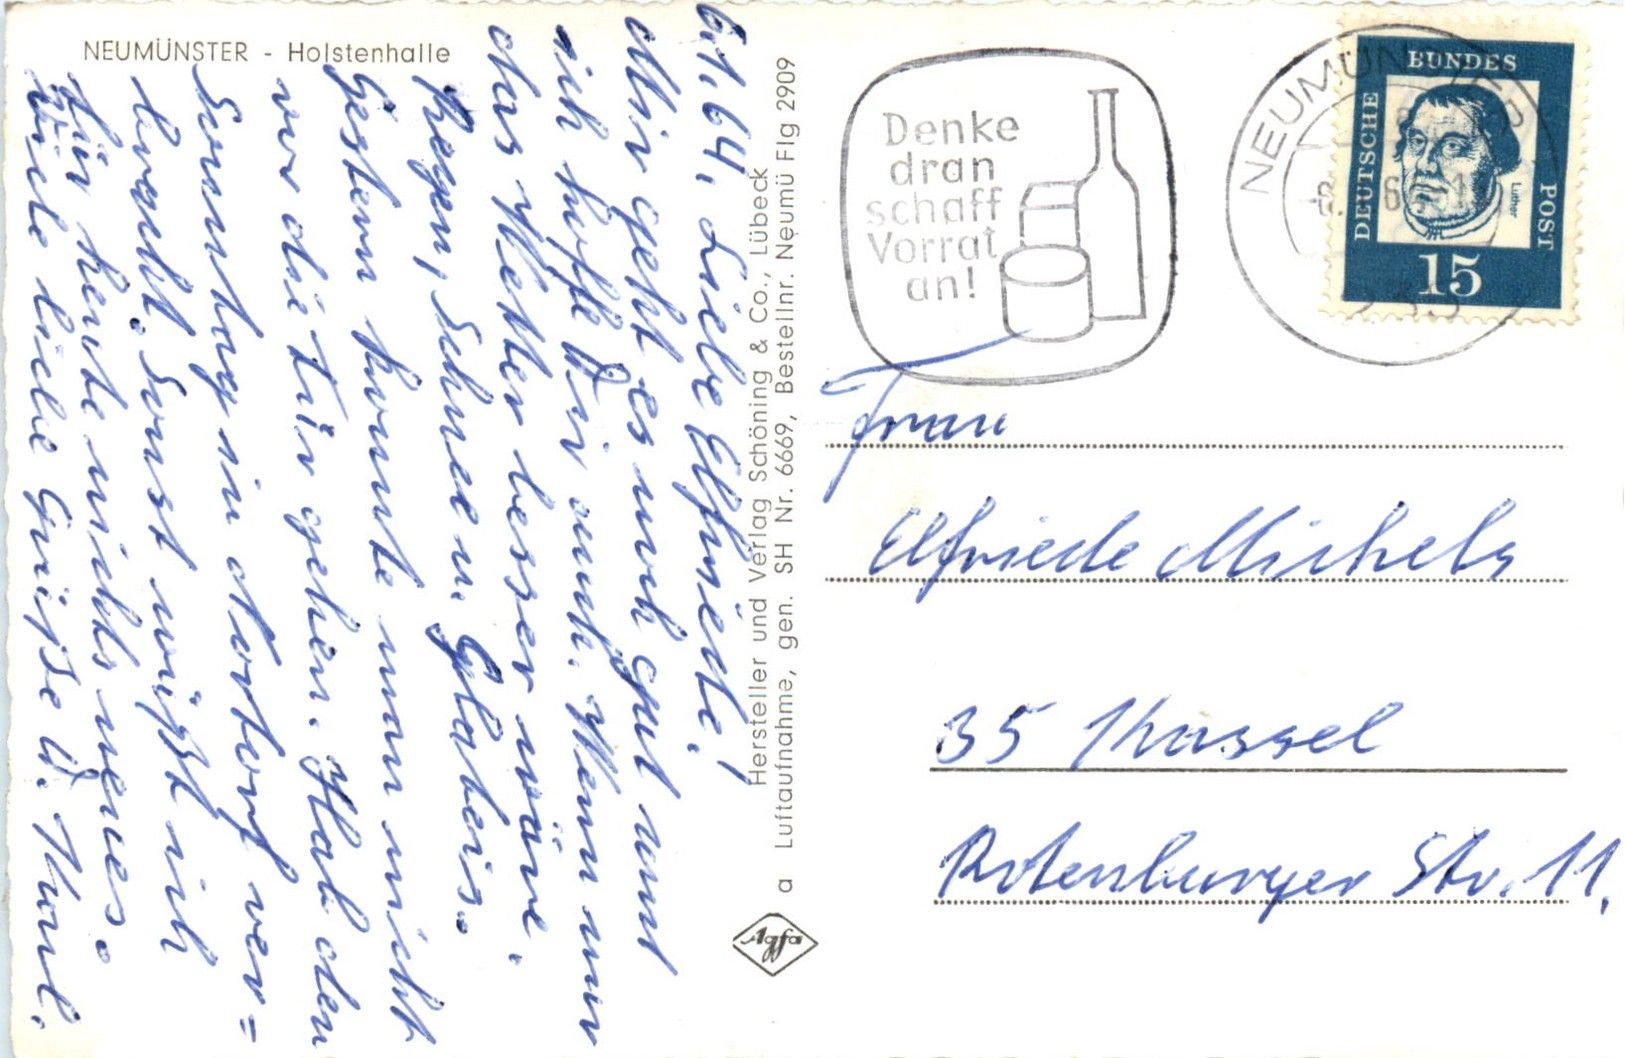 NEUMÜNSTER - Holstenhalle
6.1.64. Liebe Elfriede!
Mir geht es noch gut und
ich hoffe Dir auch. Wenn nur
das Wetter besser wäre.
Regen, Schnee u. Glateis.
Gestern konnte man nicht
vor die Tür gehen. Hab den
Sonntag in Nortorf ver=
bracht. Sonst wüßt ich
für heute nichts neues.
Viele liebe Grüße D. Karl.
Hersteller und Verlag Schöning & Co., Lübeck
a Luftaufnahme, gen. SH Nr. 6669, Bestellnr. Neumü Flg 2909
Agfa
Denke
dran
schaff
Vorrat
an!
NEUMÜNSTER
DEUTSCHE
BUNDES
POST
Luther
15
Frau
Elfriede Michels
35 Kassel
Rotenburger Str. 11.